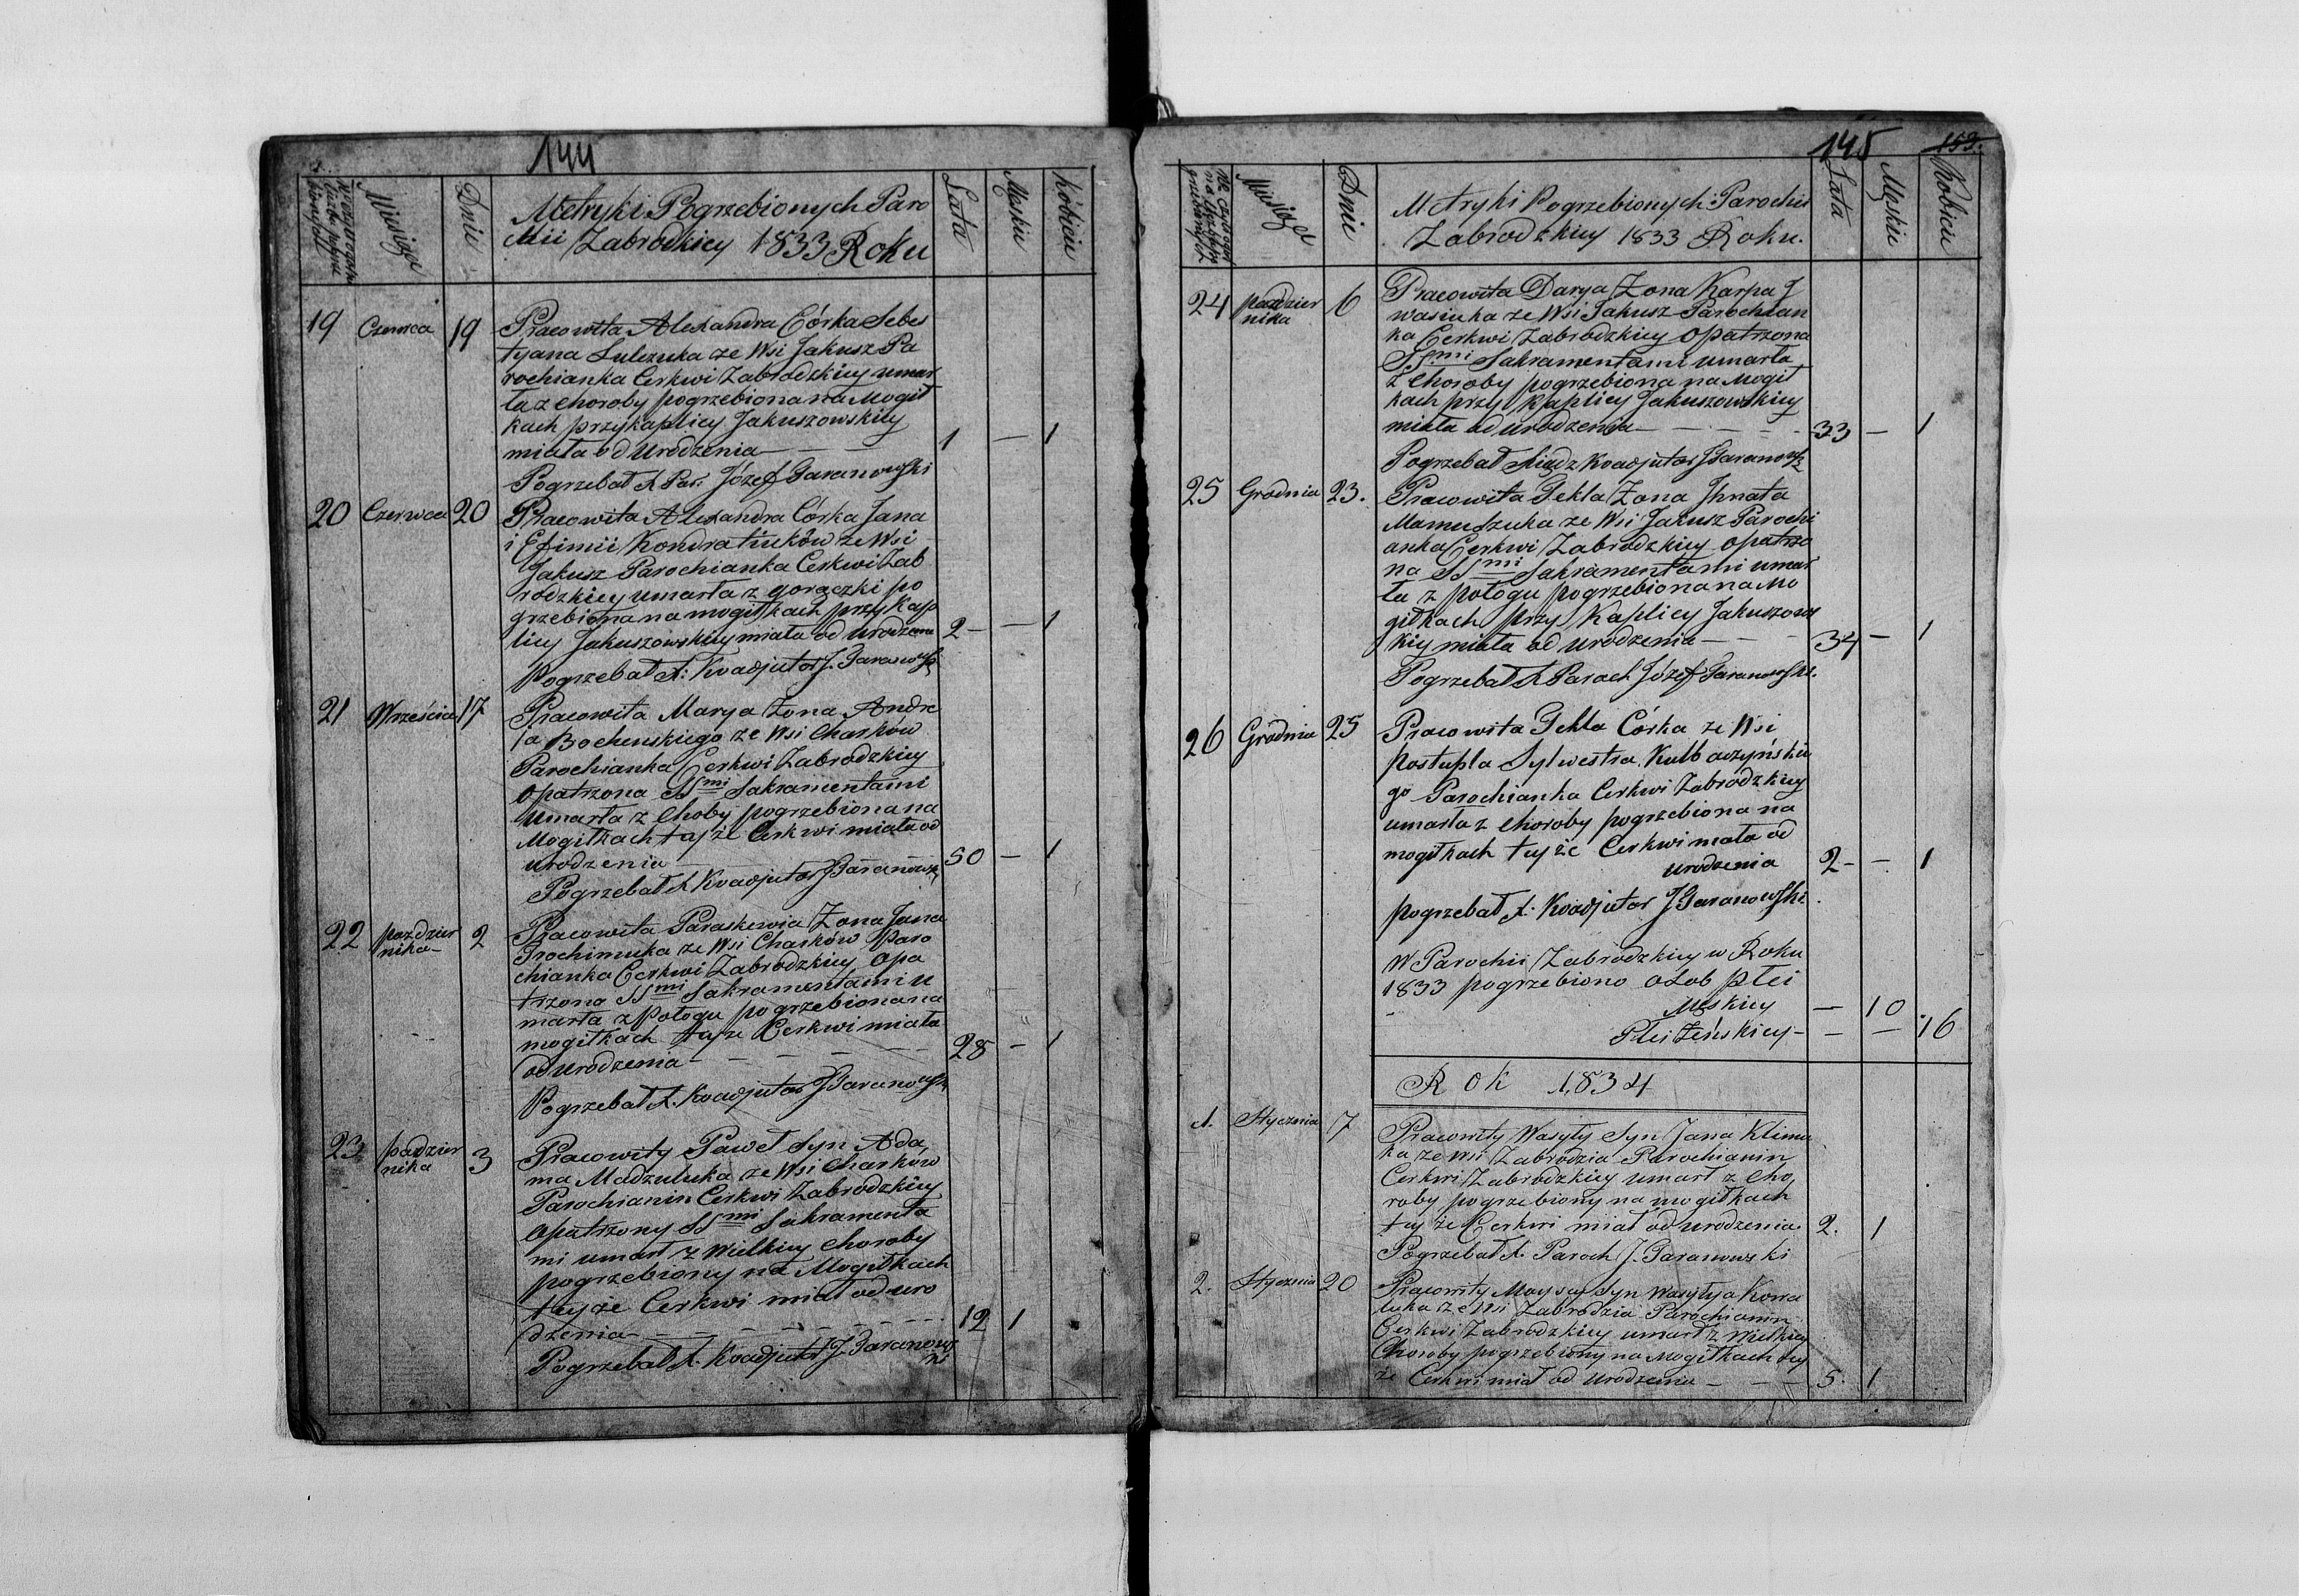 144
Miesiąc
Dnie
Metryki Pogrzebionych Paro
chii Zabrodzkiey 1833 Roku
Lata
Męskie
Kobiece
19 Czerwca 19
Pracowita Alexandra Córka Sebes
tyana Sulczuka ze Wsi Jakusz Pa
rochianka Cerkwi Zabrodzkiey umar
ła z choroby pogrzebiona na Mogił
kach przy kaplicy Jakuszowskiey
miała od urodzenia — 1 — 1
Pogrzebał X Par. Józef Garanowski
20 Czerwca 20
Pracowita Alexandra Córka Jana
i Efimii Kondratiuków ze Wsi
Jakusz Parochianka Cerkwi Zab
rodzkiey umarła z gorączki po
grzebiona na mogiłkach przy kap
licy Jakuszowskiey miała od urodzenia 2 — — 1
Pogrzebał X. Koadjutor J. Garanowski
21 Września 17
Pracowita Marya żona Andre
ja Bochenskiego ze Wsi Charków
Parochianka Cerkwi Zabrodzkiey
Opatrzona SSmi Sakramentami
Umarła z Choby pogrzebiona na
Mogiłkach tayże Cerkwi miała od
urodzenia 50 — 1
Pogrzebał X Koadjutor J Garanowsk
22 paździer
nika 2
Pracowita Paraskewia Żona Jana
Trochimuka ze Wsi Charków Paro
chianka Cerkwi Zabrodzkiey opa
trzona SSmi Sakramentami u
marła z Połogu pogrzebiona na
mogiłkach tayże Cerkwi miała
od urodzenia — 28 — 1
Pogrzebał X. Koadjutor J Garanowsk
23 padzier
nika 3
Pracowity Paweł Syn Ada
ma Madzuluka ze Wsi Charków
Parochianin Cerkwi Zabrodzkiey
Opatrzony SSmi Sakramenta
mi umarł z Wielkiey Choroby
pogrzebiony na Mogiłkach
teyże Cerkwi miał od uro
dzenia — 12 1
Pogrzebał X. Koadjutor J. Garanows
ki
145
153.
Miesiąc
Dnie
Metryki Pogrzebionych Parochii
Zabrodzkiey 1833 Roku.
Lata
Męskie
Kobiece
24 paździer
nika 6
Pracowita Darya Żona Karpa J
wasiuka ze Wsi Jakusz Parochian
ka Cerkwi Zabrodzkiey opatrzona
SSmi Sakramentami umarła
z Choroby pogrzebiona na Mogił
kach przy Kaplicy Jakuszowskiey
miała od urodzenia — 33 — 1
Pogrzebał Xiądz Koadjutor J Garanowsk
25 Grudnia 23.
Pracowita Tekla Żona Ihnata
Mamuszuka ze Wsi Jakusz Parochi
anka Cerkwi Zabrodzkiey opatrzo
na SSmi Sakramentami umar
ła z połogu pogrzebiona na Mo
giłkach przy Kaplicy Jakuszows
kiey miała od urodzenia — 34 — 1
Pogrzebał X Paroch Józef Garanowski.
26 Grudnia 25
Pracowita Tekla Córka ze Wsi
Postupla Sylwestra Kulbaczyńskie
go Parochianka Cerkwi Zabrodzkiey
umarła z choroby pogrzebiona na
mogiłkach teyże Cerkwi miała od
urodzenia 2 — — 1
pogrzebał X. Koadjutor J Garanowski
W Parochii Zabrodzkiey w Roku
1833 pogrzebiono osob płci
Męskiey — 10
Płci Żeńskiey — — — 16
Rok 1834
1. Stycznia 7
Pracowity Wasyly Syn Jana Klimu
ka ze wsi Zabrodzia Parochianin
Cerkwi Zabrodzkiey umarł z Cho
roby pogrzebiony na mogiłkach
teyże Cerkwi miał od urodzenia. 2. 1
Pogrzebał X. Paroch J. Garanowski
2. Stycznia 20
Pracowity Moysey Syn Wasylya Kowa
luka ze Wsi Zabrodzia Parochianin
Cerkwi Zabrodzkiey umarł z Wielkiey
Choroby pogrzebiony na Mogiłkach tey
że Cerkwi miał od urodzenia — 5. 1